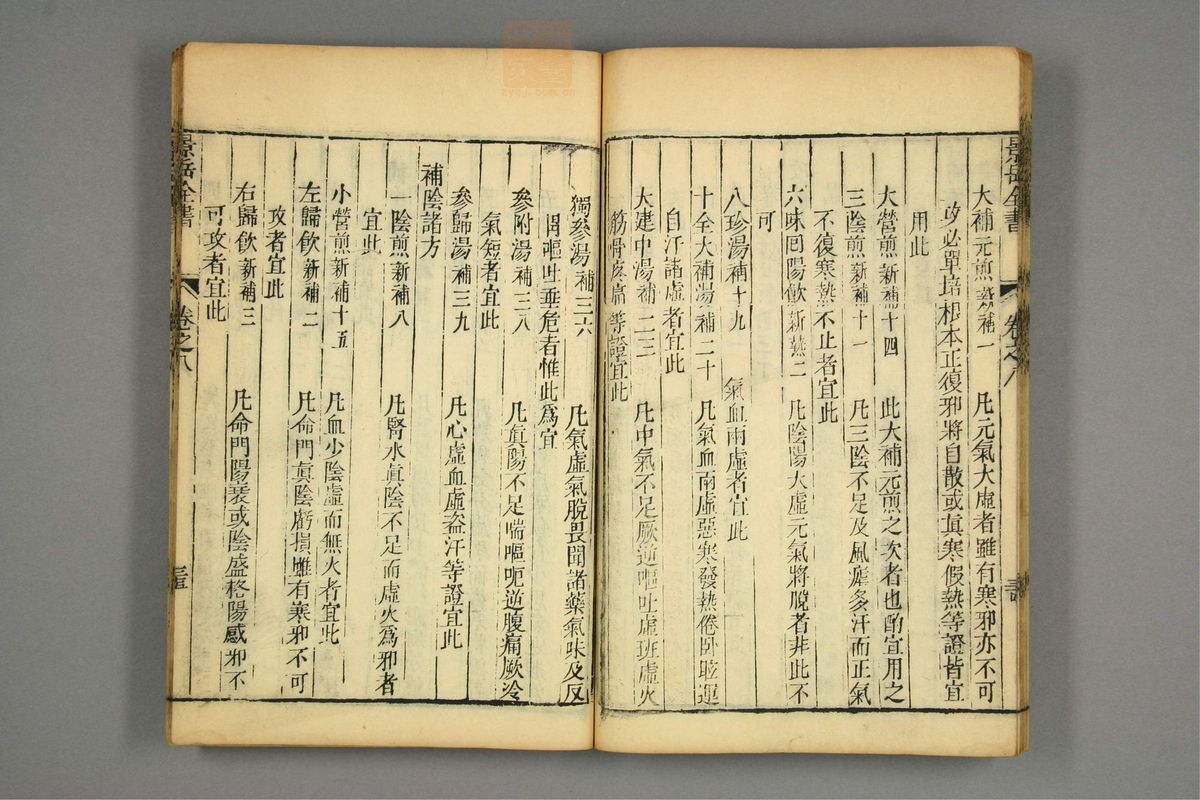 景岳全書 卷之八
大補元煎新補一 凡元氣大虛者雖有寒邪亦不可
攻必單培根本正復邪將自散或真寒假熱等證皆宜
用此
大營煎新補十四 此大補元煎之次者也酌宜用之
三陰煎新補十一 凡三陰不足及風瘧多汗而正氣
不復寒熱不止者宜此
六味回陽飲新熱二 凡陰陽大虛元氣將脫者非此不
可
八珍湯補十九 氣血兩虛者宜此
十全大補湯補二十 凡氣血兩虛惡寒發熱倦卧眩運
自汗諸虛者宜此
大建中湯補二三 凡中氣不足厥逆嘔吐虛班虛火
筋骨疼痛等證宜此
獨參湯補三六 凡氣虛氣脫畏聞諸藥氣味及反
胃嘔吐垂危者惟此為宜
參附湯補三八 凡真陽不足喘嘔呃逆腹痛厥冷
氣短者宜此
參歸湯補三九 凡心虛血虛盜汗等證宜此
補陰諸方
一陰煎新補八 凡腎水真陰不足而虛火為邪者
宜此
小營煎新補十五 凡血少陰虛而無火者宜此
左歸飲新補二 凡命門真陰虧損雖有寒邪不可
攻者宜此
右歸飲新補三 凡命門陽衰或陰盛格陽感邪不
可攻者宜此
景岳全書 卷之八